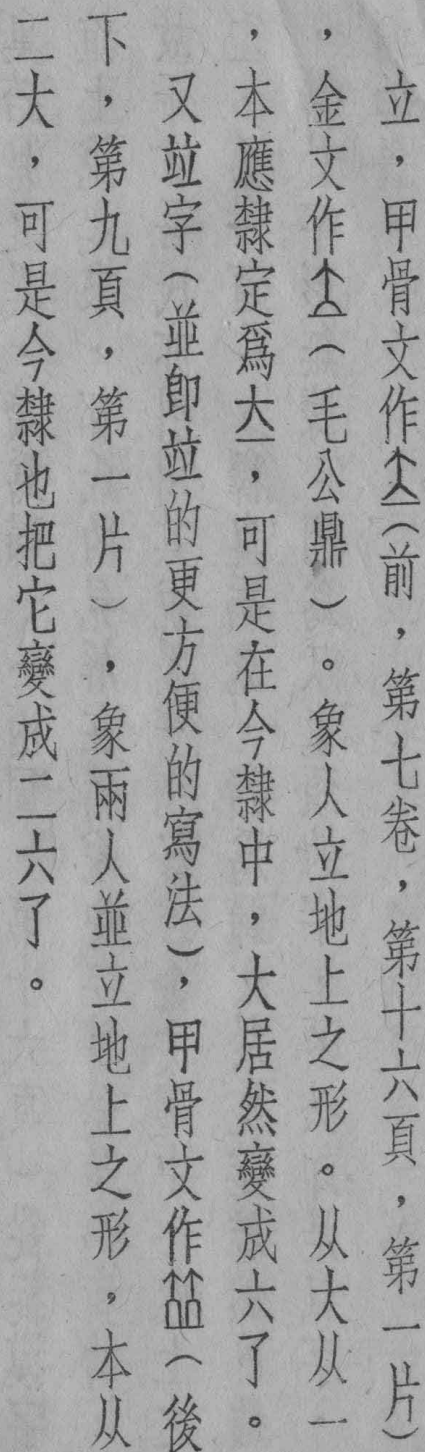 立，甲骨文作（前，第七卷，第十六頁，第一片）
，金文作（毛公鼎）。象人立地上之形。从大从一
，本應隸定爲，可是在今隸中，大居然變成六了。
又竝字（並即竝的更方便的寫法），甲骨文作（後
下，第九頁，第一片），象兩人並立地上之形，本从
二大，可是今隸也把它變成二六了。